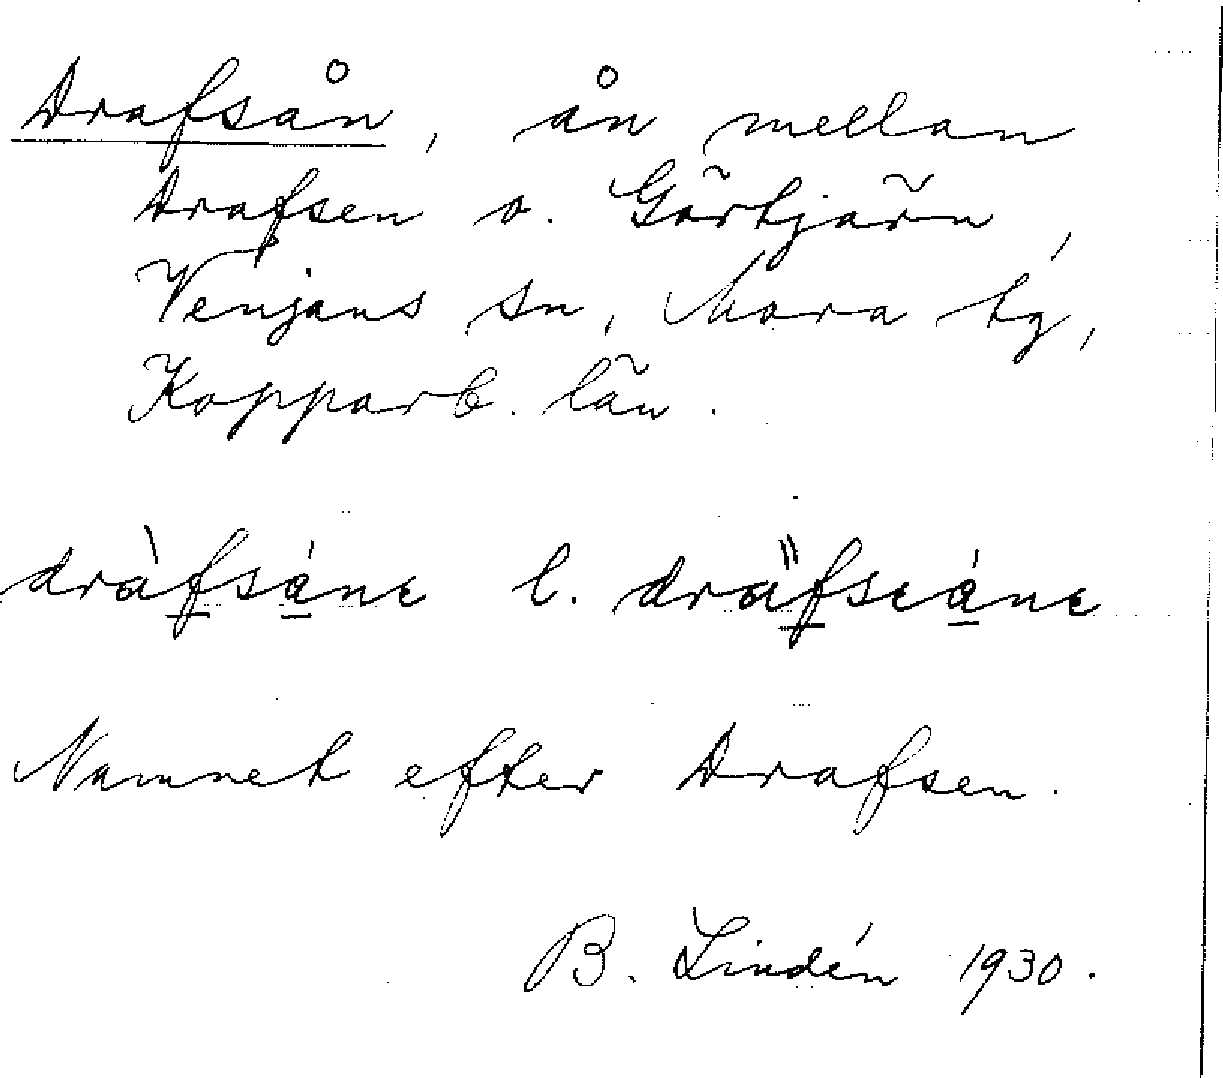 Drafsån, ån mellan
Drafsen o. Görtjärn,
Venjans sn, Mora tg,
Kopparb. län.
dràfsánɛ l. dräfsɛánɛ
Namnet efter Drafsen.
B. Lindén 1930.